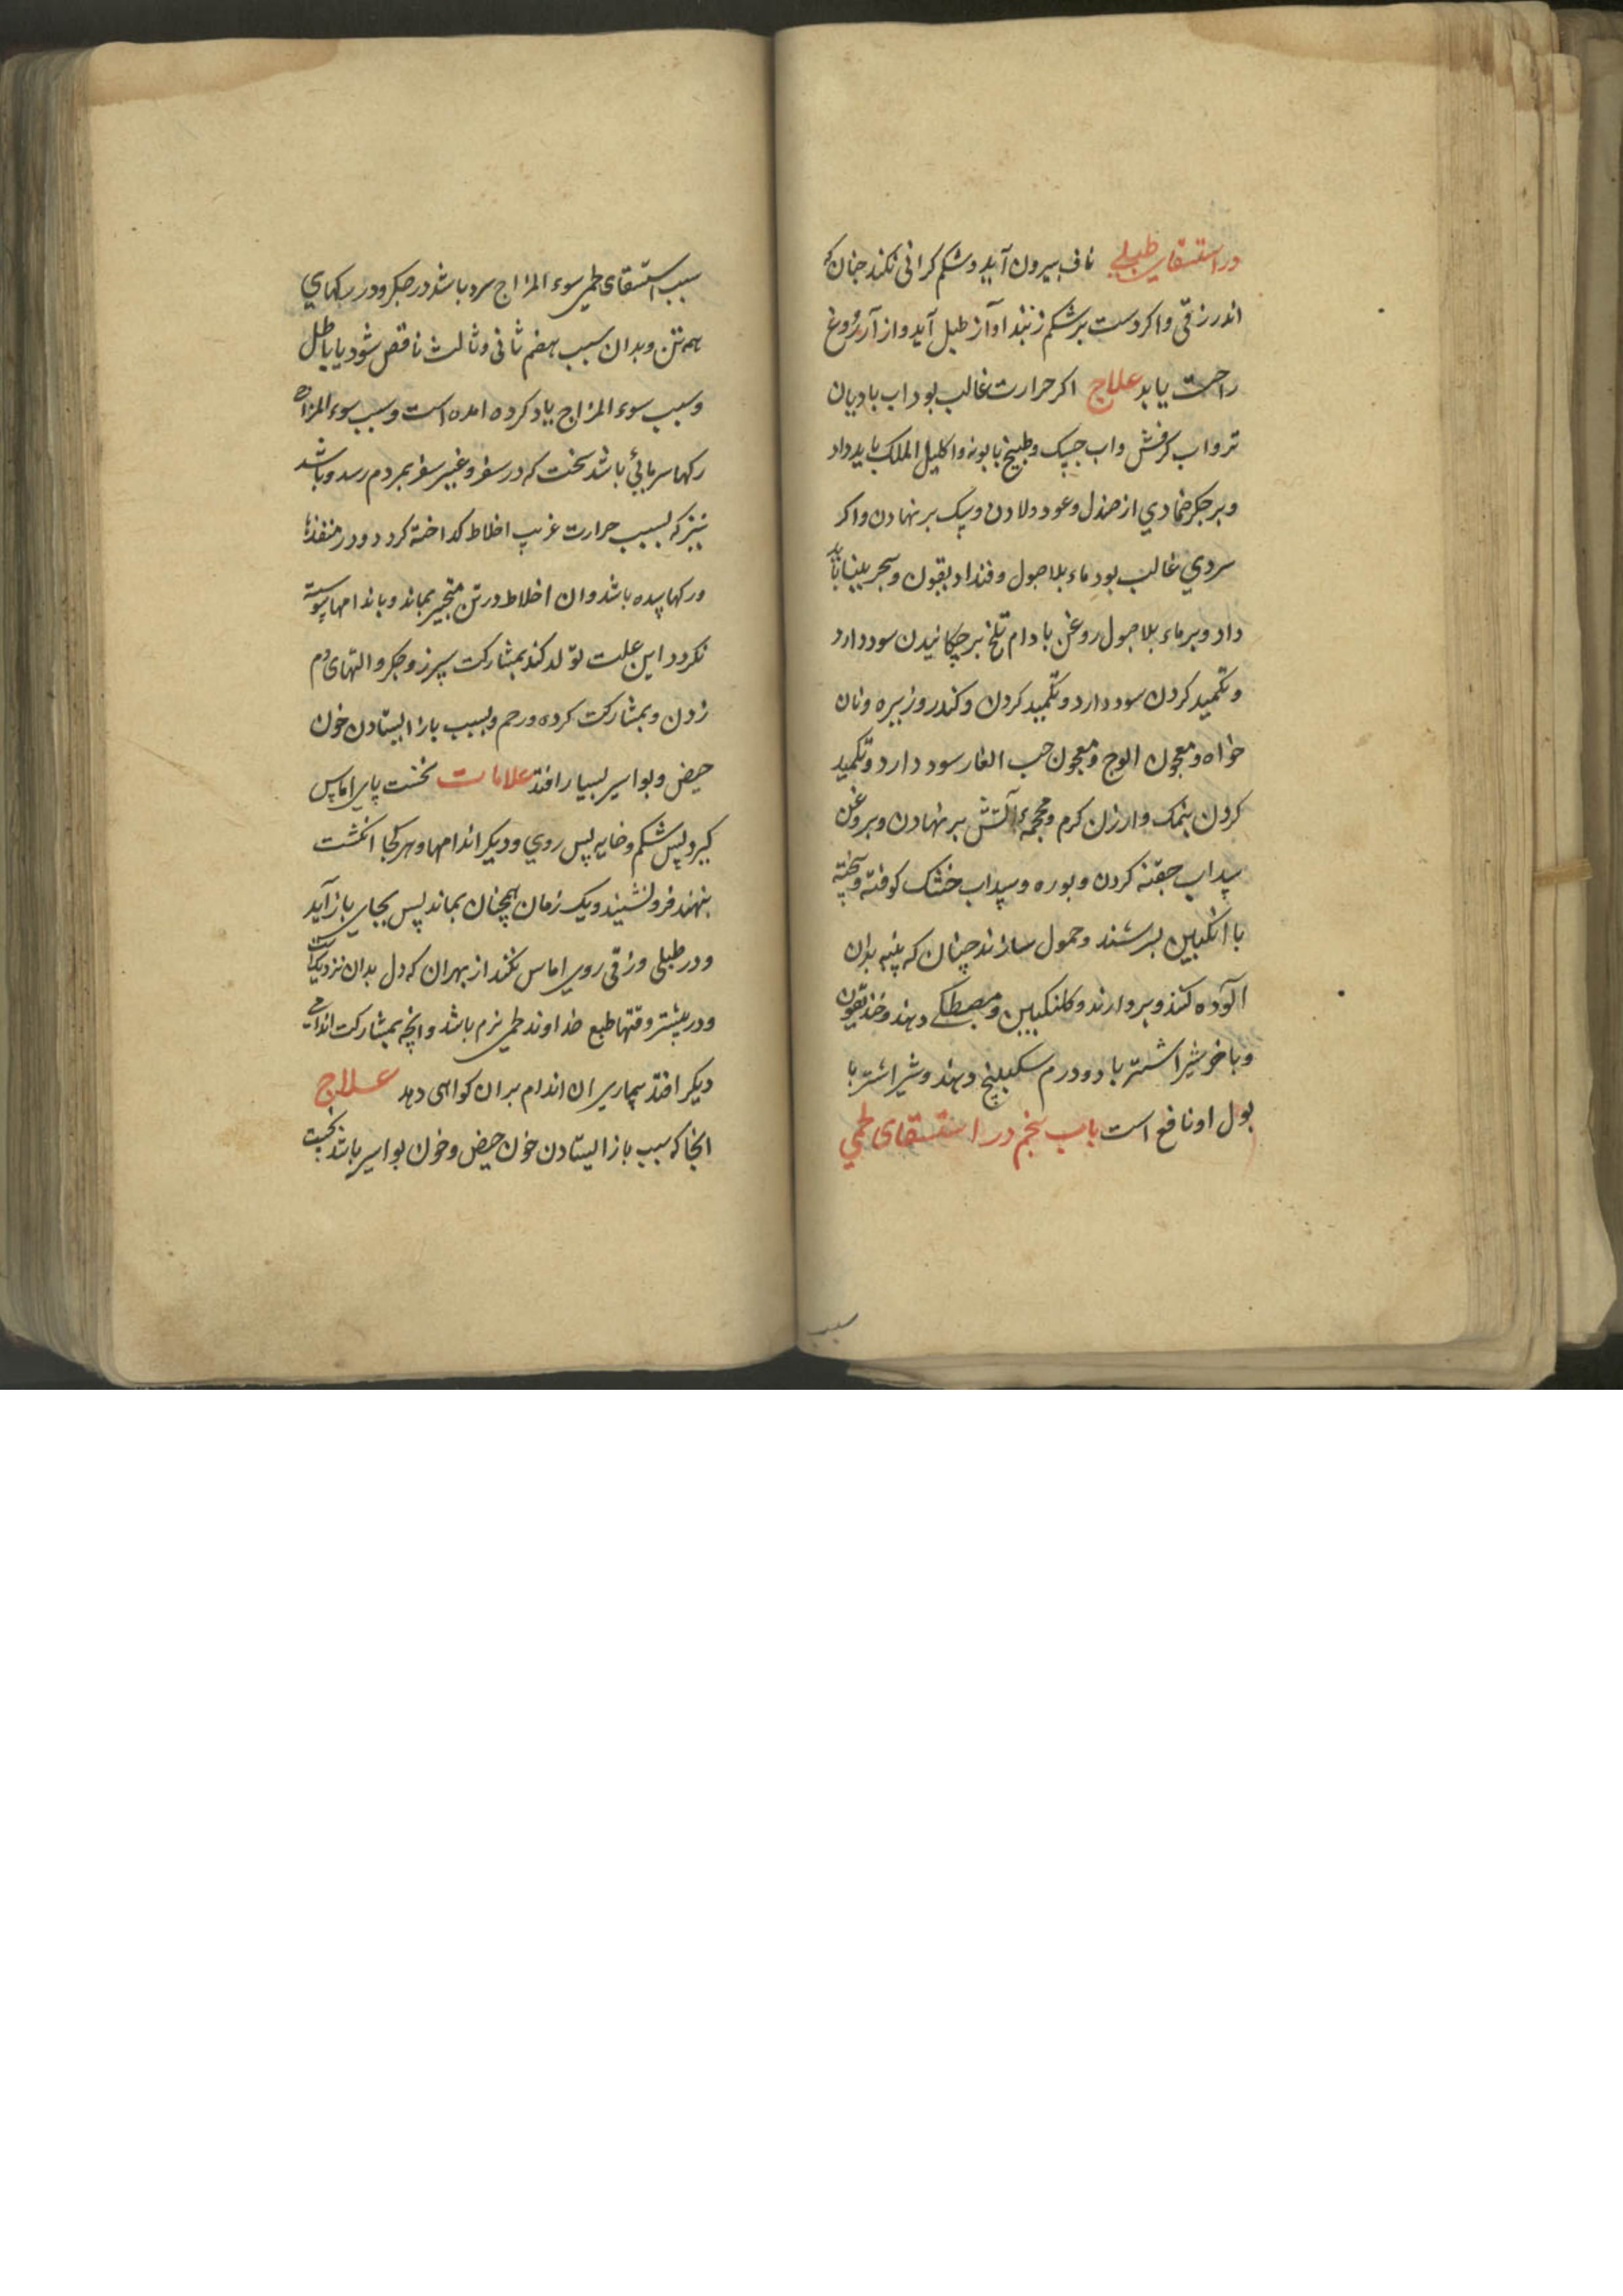 در استسقای طبلی ناف بیرون آید و شکم کرانی نکند جنان که
اندر زقی و اکر دست بر شکم زنند اواز طبل آید و از آروغ
راحت یابد علاج اکر حرارت غالب بود اب بادیان
تر و اب کرفش و اب و طبیخ بابونه و اکلیل الملک باید داد
و بر جکر ضمادی از صندل و عود و لادن و بر نهادن و اکر
سردی غالب بود ماء بلاصول و و سجر بینا باید
داد و بر ماء بلاصول روغن بادام تلخ بر چکانیدن سود دارد
و تکمید کردن سود دارد و تکمید کردن و کندر و زیره و نان
خواه و معجون الوج و معجون حب الغار سود دارد و تکمید
کردن بنمک و ارزن کرم و محجمهٔ آتش بر نهادن و بروغن
سداب حقنه کردن و بوره و سداب خشک کوفته و بیخته
با انکبین بسرشند و حمول سازند چنان که پنبه بدان
آلوده کنند و بردارند و کلنکبین و مصطکی دهند و خندیقون
و باخر شیر اشتر با دو درم سکبینج دهند و شیر اشتر با
بول او نافع است باب پنجم در استسقای لحمی
سبب
سبب استسقای لحمی سوء المزاج سرد باشد در جکر و در رکهای
همه تن و بدان سبب هضم ثانی و ثالث ناقص شود یا باطل
و سبب سوء المزاج یاد کرده امده است و سبب سوء المزاج
رکها سرمائی باشد سخت که در سفر و غیر سفر بمردم رسد و باشد
نیز که بسبب حرارت غریب اخلاط کداخته کردد و در منفذها
و رکها باشد و ان اخلاط در تن متحیر بماند و باندامها پیوسته
نکردد این علت تولد کند بمشارکت سپرز و جکر و التهای دم
زدن و بمشارکت کرده و رحم و بسبب باز ایستادن خون
حیض و بواسیر بسیار افتد علامات نخست پای اماس
کیرد پس شکم و خایه پس روی و دیکر اندامها و هر کجا انکشت
بنهند فرو نشیند و یک زمان همچنان بماند پس بجای باز آید
و در طبلی و زقی روی اماس نکند از بهر ان که دل بدان نزدیکست
و در بیشتر وقتها طبع خداوند لحمی نرم باشد و انچه بمشارکت اندامی
دیکر افتد بیماری ان اندام بران کواهی دهد علاج
انجا که سبب باز ایستادن خون حیض و خون بواسیر باشد نخست